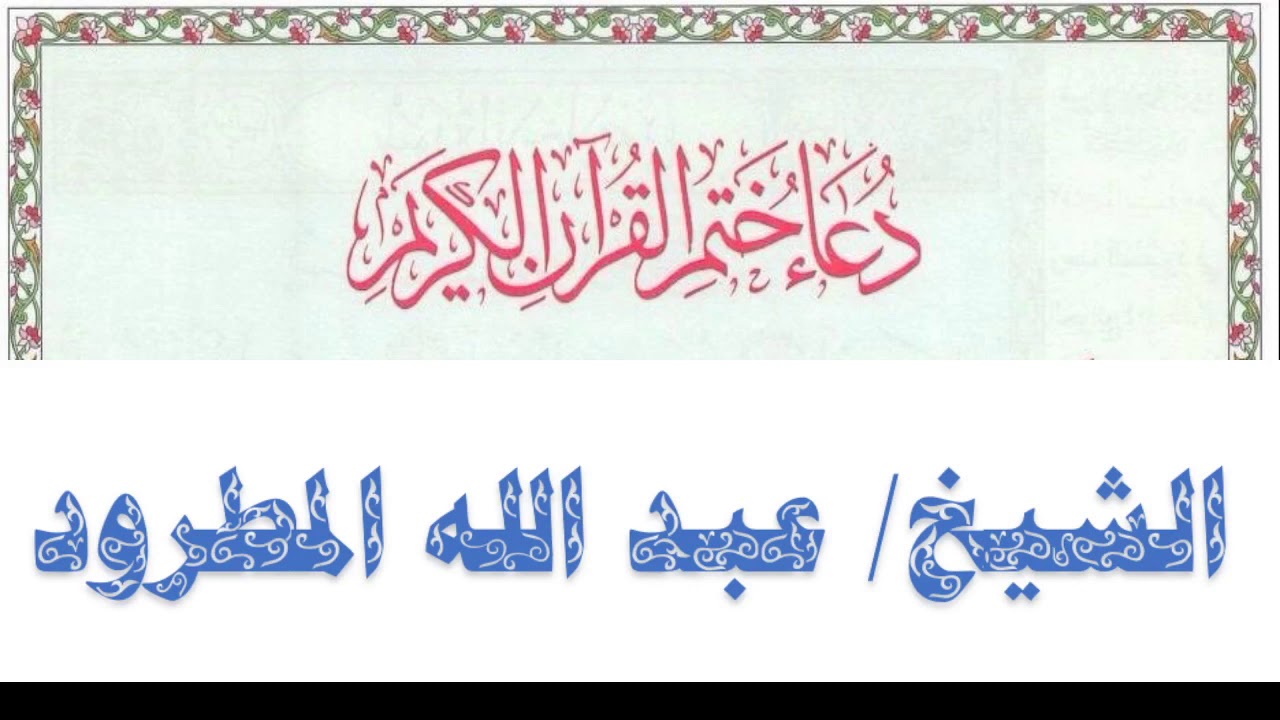 دُعَاءُ خَتْمِ الْقُرْآنِ الْكَرِيمِ
الشيخ/ عبد الله المطرود